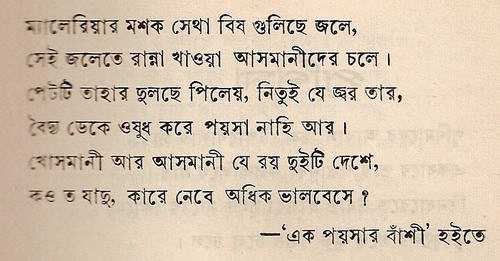 ম্যালেরিয়ার মশক সেথা বিষ গুলিছে জলে,
সেই জলেতে রান্না খাওয়া আসমানীদের চলে।
পেটটি তাহার দুলছে পিলেয়, নিতুই যে জ্বর তার,
বৈদ্য ডেকে ওষুধ করে পয়সা নাহি আর।
খোসমানী আর আসমানী যে রয় দুইটি দেশে,
কও ত যাদু, কারে নেবে অধিক ভালবেসে ?
—'এক পয়সার বাঁশী' হইতে